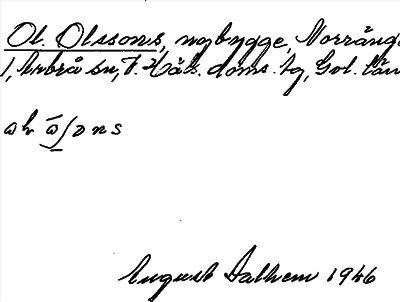 Ol. Olssons, nybygge, Norrånge
1, Arbrå sn, V. Häls. doms. tg, Gvl. län
August Dalhem 1946